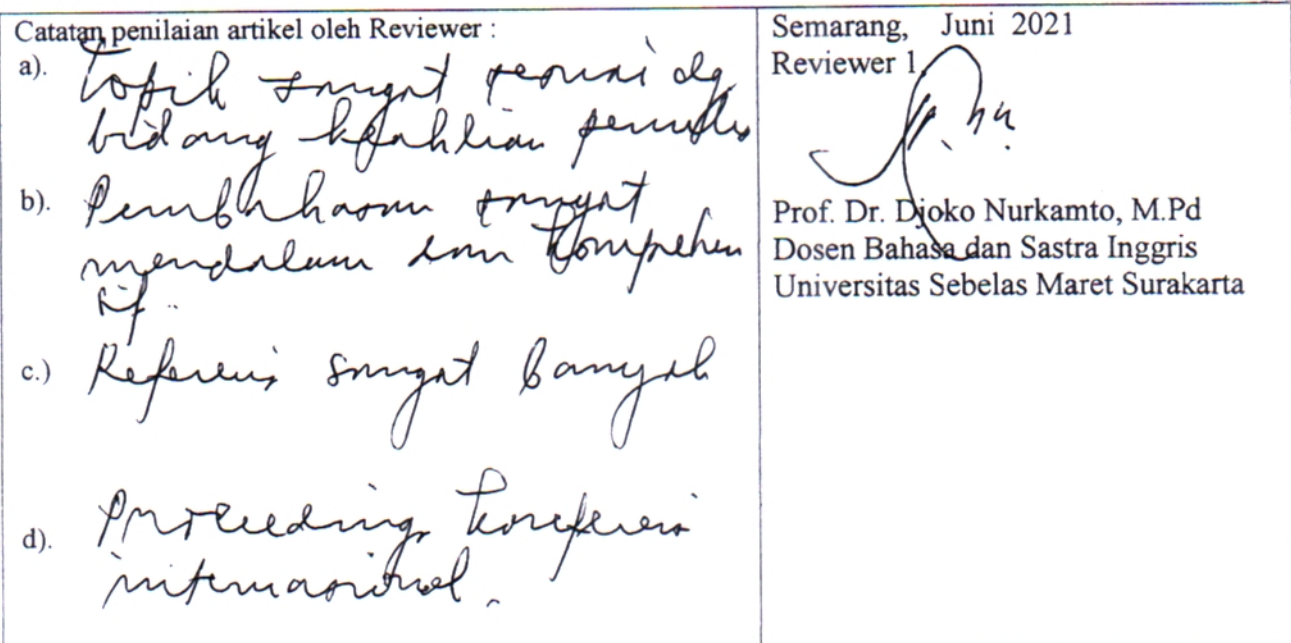 Catatan penilaian artikel oleh Reviewer :
a). Topik sangat sesuai dg
bidang keahlian penulis
b). Pembahasan sangat
mendalam dan komprehen
sif.
c.) Referensi sangat banyak
d). Proceeding konferensi
internasional.
Semarang, Juni 2021
Reviewer 1
Prof. Dr. Djoko Nurkamto, M.Pd
Dosen Bahasa dan Sastra Inggris
Universitas Sebelas Maret Surakarta